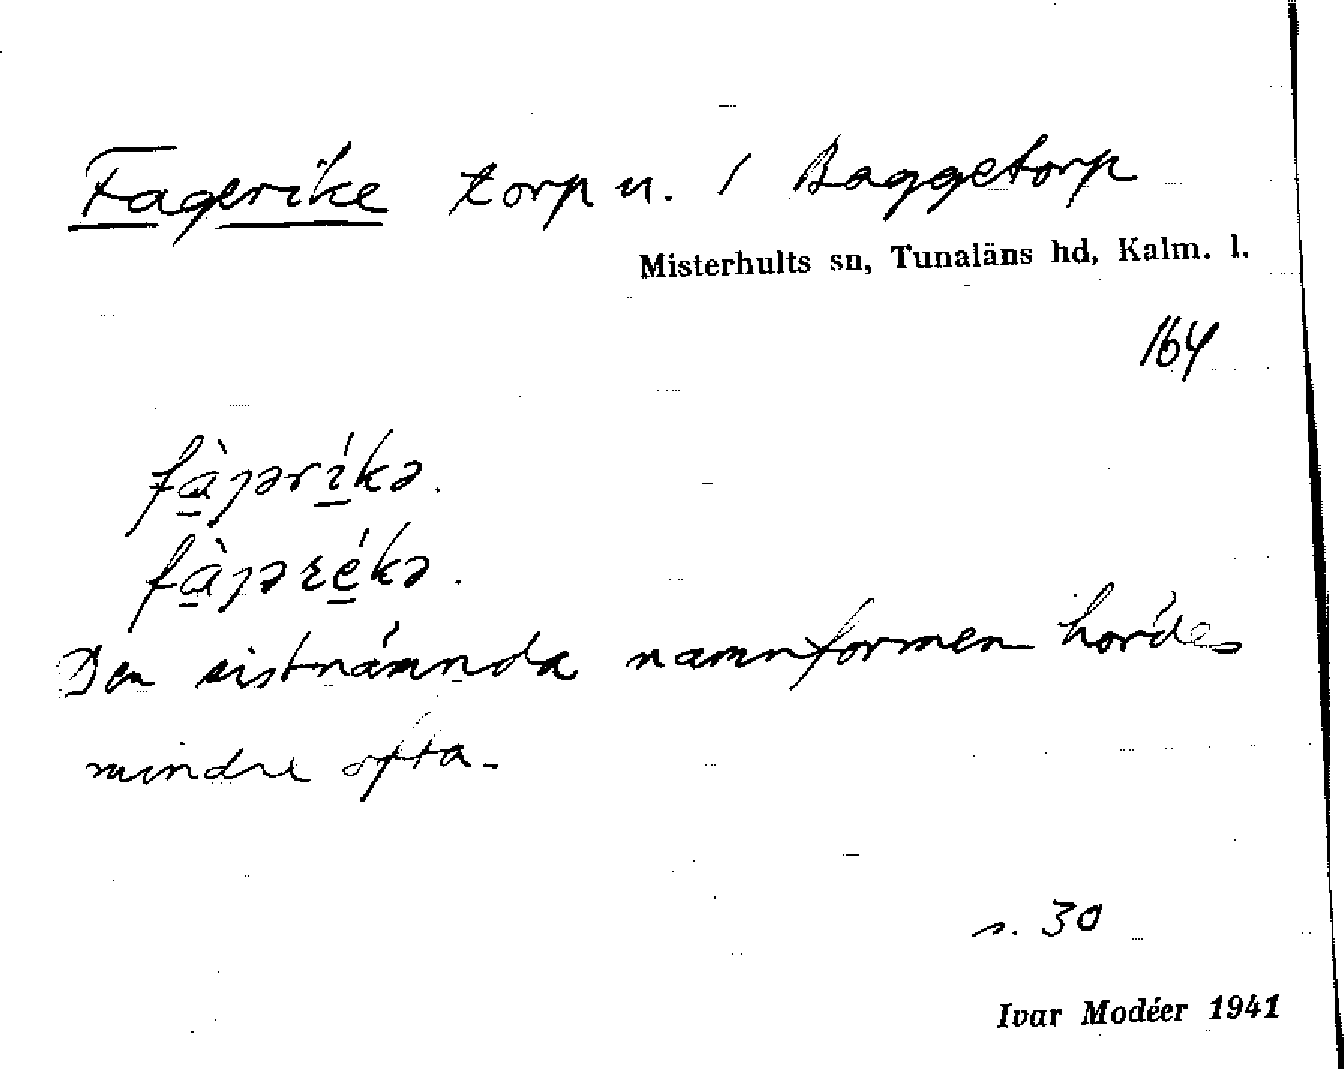 Fagerike torp u. 1 Baggetorp
Misterhults sn, Tunaläns hd, Kalm. l.
164
fàjəríkə.
fàjərékə.
Den sistnämnda namnformen hördes
mindre ofta.
s. 30
Ivar Modéer 1941